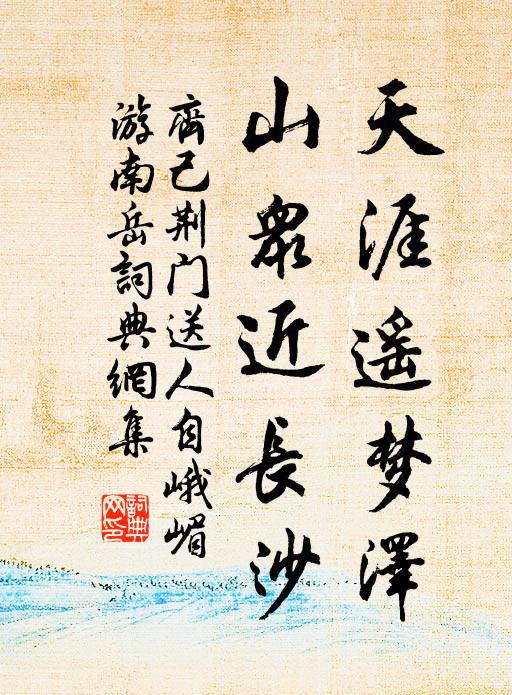 天涯遥梦澤
山眾近長沙
齊己荆门送人自峨嵋
游南岳詞典網集
詞典
网印